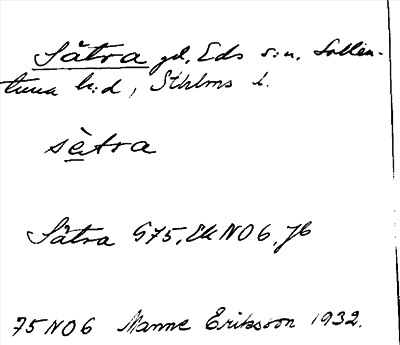 Sätra gd, Eds s:n, Sollen-
tuna h:d, Sthlms l.
sètra
Sätra G75, Ek NO6, Jb
75 NO6 Manne Eriksson 1932.